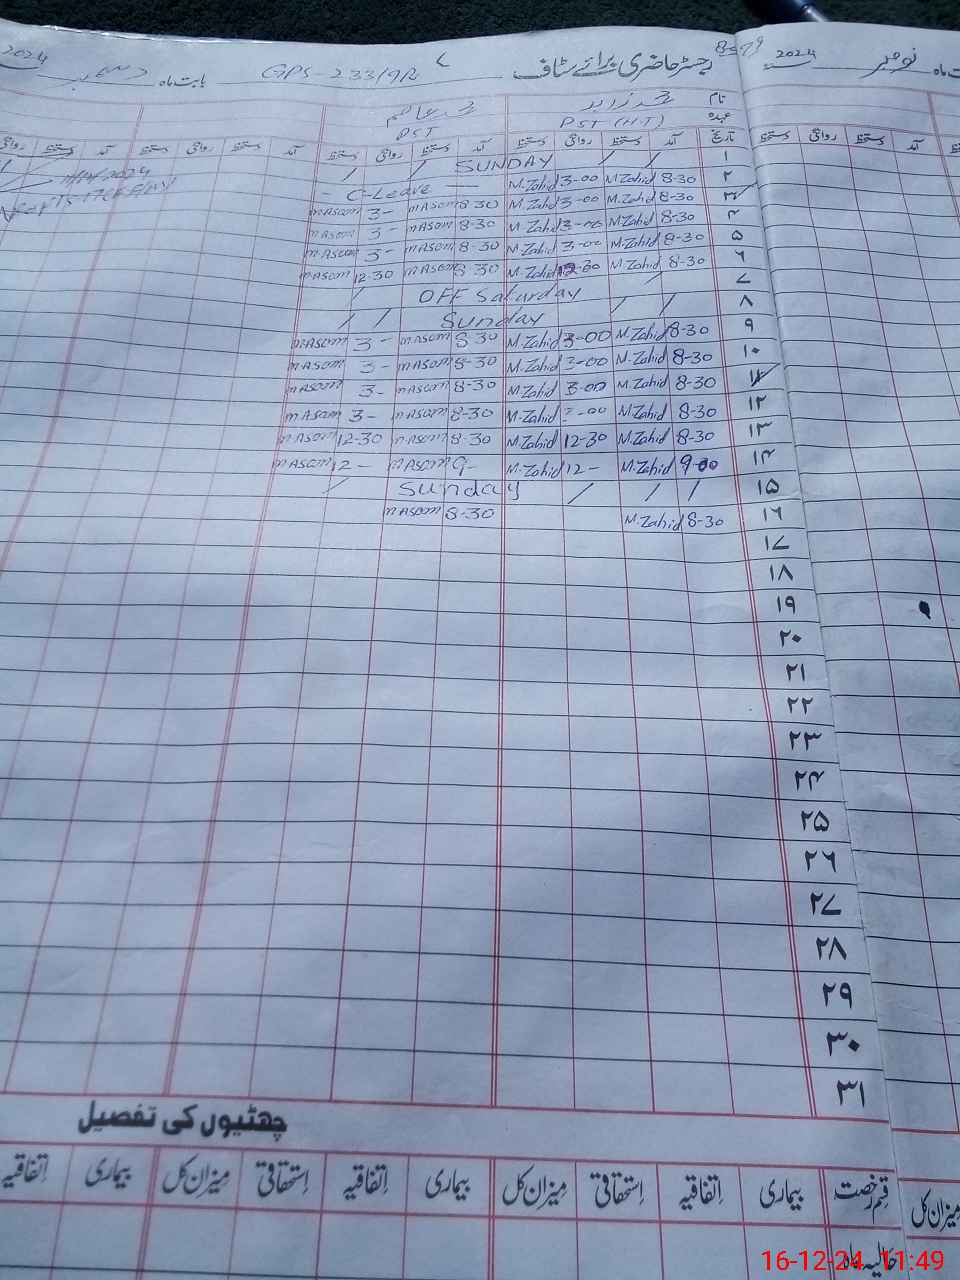 رجسٹر حاضری برائے سٹاف GPS-233/9R بابت ماہ دسمبر 2024
2024 نومبر
نام محمد زاہد محمد عاصم
عہدہ PST (H.T) PST
تاریخ آمد دستخط روانگی دستخط آمد دستخط روانگی دستخط آمد دستخط روانگی دستخط آمد دستخط روانگی
۱ / / SUNDAY / /
۲ 8-30 M.Zahid 3-00 M.Zahid - C-Leave -
۳ 8-30 M.Zahid 3-00 M.Zahid 8-30 mASam 3- mASam
۴ 8-30 M.Zahid 3-00 M.Zahid 8-30 mASam 3- mASam
۵ 8-30 M.Zahid 3-00 M.Zahid 8-30 mASam 3- mASam
۶ 8-30 M.Zahid 12-30 M.Zahid 8-30 mASam 12-30 mASam
۷ OFF Saturday /
۸ / / Sunday / /
۹ 8-30 M.Zahid 3-00 M.Zahid 8-30 mASam 3- mASam
۱۰ 8-30 M.Zahid 3-00 M.Zahid 8-30 mASam 3- mASam
۱۱ 8-30 M.Zahid 3-00 M.Zahid 8-30 mASam 3- mASam
۱۲ 8-30 M.Zahid 3-00 M.Zahid 8-30 mASam 3- mASam
۱۳ 8-30 M.Zahid 12-30 M.Zahid 8-30 mASam 12-30 mASam
۱۴ 9-00 M.Zahid 12- M.Zahid 9- mASam 12- mASam
۱۵ / / / Sunday /
۱۶ 8-30 M.Zahid 8-30 mASam
۱۷
۱۸
۱۹
۲۰
۲۱
۲۲
۲۳
۲۴
۲۵
۲۶
۲۷
۲۸
۲۹
۳۰
۳۱
چھٹیوں کی تفصیل
قسم رخصت بیماری اتفاقیہ استحقاقی میزان کل بیماری اتفاقیہ استحقاقی میزان کل بیماری اتفاقیہ
میزان کل
حالیہ ماہ
16-12-24 11:49